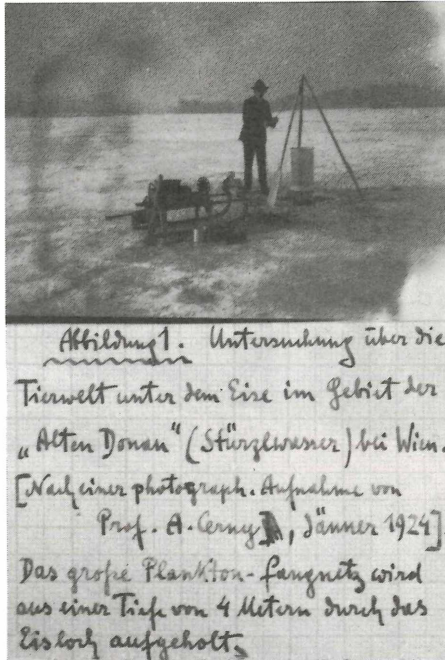 Abbildung 1. Untersuchung über die
Tierwelt unter dem Eise im Gebiet der
„Alten Donau“ (Stürzlwasser) bei Wien.
[Nach einer photograph. Aufnahme von
Prof. A. Cerny], Jänner 1924]
Das große Plankton-fangnetz wird
aus einer Tiefe von 4 Metern durch das
Eisloch aufgeholt.